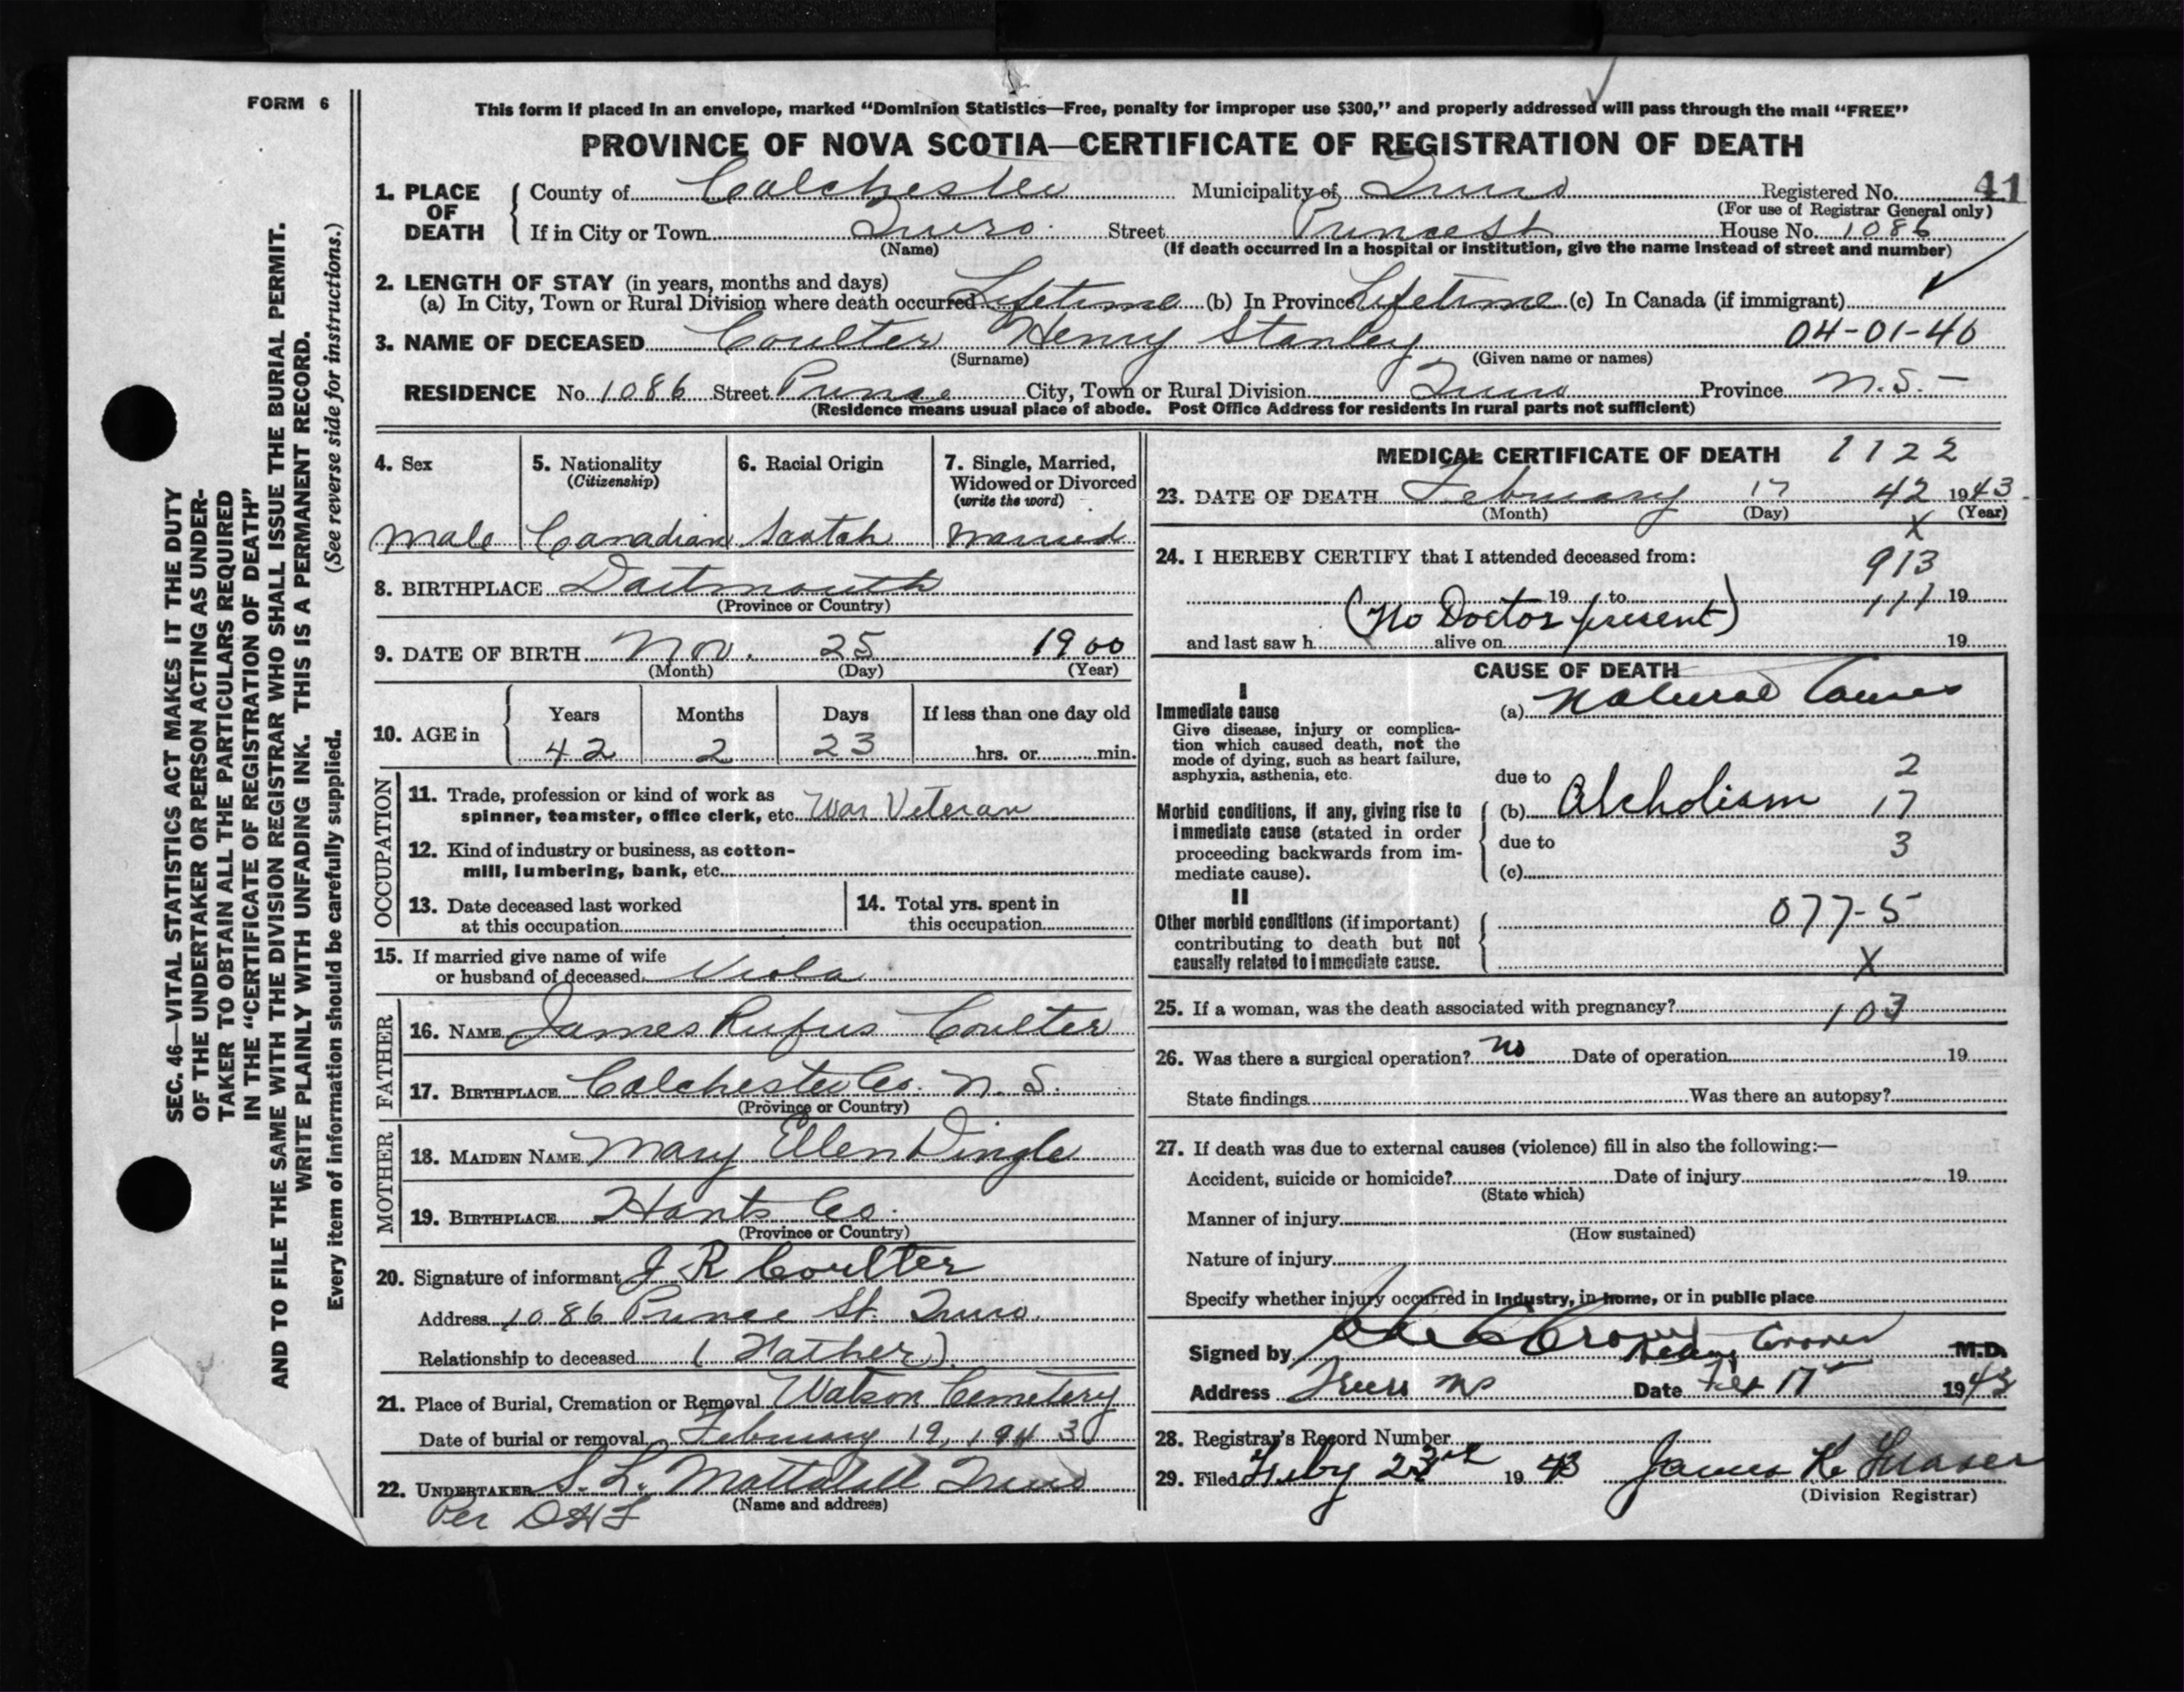 FORM 6
This form if placed in an envelope, marked “Dominion Statistics—Free, penalty for improper use $300,” and properly addressed will pass through the mail “FREE”
PROVINCE OF NOVA SCOTIA—CERTIFICATE OF REGISTRATION OF DEATH
1. PLACE OF DEATH
County of Colchester Municipality of Truro Registered No. 41
(For use of Registrar General only)
If in City or Town Truro Street Prince St House No. 1086
(Name) (If death occurred in a hospital or institution, give the name instead of street and number)
2. LENGTH OF STAY (in years, months and days)
(a) In City, Town or Rural Division where death occurred Lifetime (b) In Province Lifetime (c) In Canada (if immigrant)
3. NAME OF DECEASED Coulter Henry Stanley 04-01-40
(Surname) (Given name or names)
RESIDENCE No. 1086 Street Prince City, Town or Rural Division Truro Province N.S.-
(Residence means usual place of abode. Post Office Address for residents in rural parts not sufficient)
4. Sex
male
5. Nationality
(Citizenship)
Canadian
6. Racial Origin
Scotch
7. Single, Married,
Widowed or Divorced
(write the word)
Married
8. BIRTHPLACE Dartmouth
(Province or Country)
9. DATE OF BIRTH Nov. 25 1900
(Month) (Day) (Year)
10. AGE in
Years Months Days If less than one day old
42 2 23 hrs. or min.
OCCUPATION
11. Trade, profession or kind of work as
spinner, teamster, office clerk, etc. War Veteran
12. Kind of industry or business, as cotton-
mill, lumbering, bank, etc.
13. Date deceased last worked
at this occupation
14. Total yrs. spent in
this occupation
15. If married give name of wife
or husband of deceased Viola
FATHER
16. NAME James Rufus Coulter
17. BIRTHPLACE Colchester Co. N.S.
(Province or Country)
MOTHER
18. MAIDEN NAME Mary Ellen Dingle
19. BIRTHPLACE Hants Co.
(Province or Country)
20. Signature of informant J R Coulter
Address 1086 Prince St. Truro.
Relationship to deceased (Father)
21. Place of Burial, Cremation or Removal Watson Cemetery
Date of burial or removal February 19, 1943
22. UNDERTAKER S. L. Mattatall Truro
(Name and address)
Per
MEDICAL CERTIFICATE OF DEATH 1122
23. DATE OF DEATH February 17 42 1943
(Month) (Day) (Year)
X
24. I HEREBY CERTIFY that I attended deceased from:
913
19 to 111 19
(No Doctor present)
and last saw h alive on 19
CAUSE OF DEATH
I
Immediate cause
Give disease, injury or complica-
tion which caused death, not the
mode of dying, such as heart failure,
asphyxia, asthenia, etc.
(a) Natural Causes
due to 2
Morbid conditions, if any, giving rise to
immediate cause (stated in order
proceeding backwards from im-
mediate cause).
(b) Alcholism 17
due to 3
(c)
II
Other morbid conditions (if important)
contributing to death but not
causally related to immediate cause.
077-5
X
25. If a woman, was the death associated with pregnancy? 103
26. Was there a surgical operation? no Date of operation 19
State findings Was there an autopsy?
27. If death was due to external causes (violence) fill in also the following:—
Accident, suicide or homicide? Date of injury 19
(State which)
Manner of injury
(How sustained)
Nature of injury
Specify whether injury occurred in Industry, in home, or in public place
Signed by M.D.
Address Truro NS Date Feb 17 1943
28. Registrar's Record Number
29. Filed Feby 23rd 1943 James K. Fraser
(Division Registrar)
SEC. 46—VITAL STATISTICS ACT MAKES IT THE DUTY
OF THE UNDERTAKER OR PERSON ACTING AS UNDER-
TAKER TO OBTAIN ALL THE PARTICULARS REQUIRED
IN THE “CERTIFICATE OF REGISTRATION OF DEATH”
AND TO FILE THE SAME WITH THE DIVISION REGISTRAR WHO SHALL ISSUE THE BURIAL PERMIT.
WRITE PLAINLY WITH UNFADING INK. THIS IS A PERMANENT RECORD.
Every item of information should be carefully supplied. (See reverse side for instructions.)